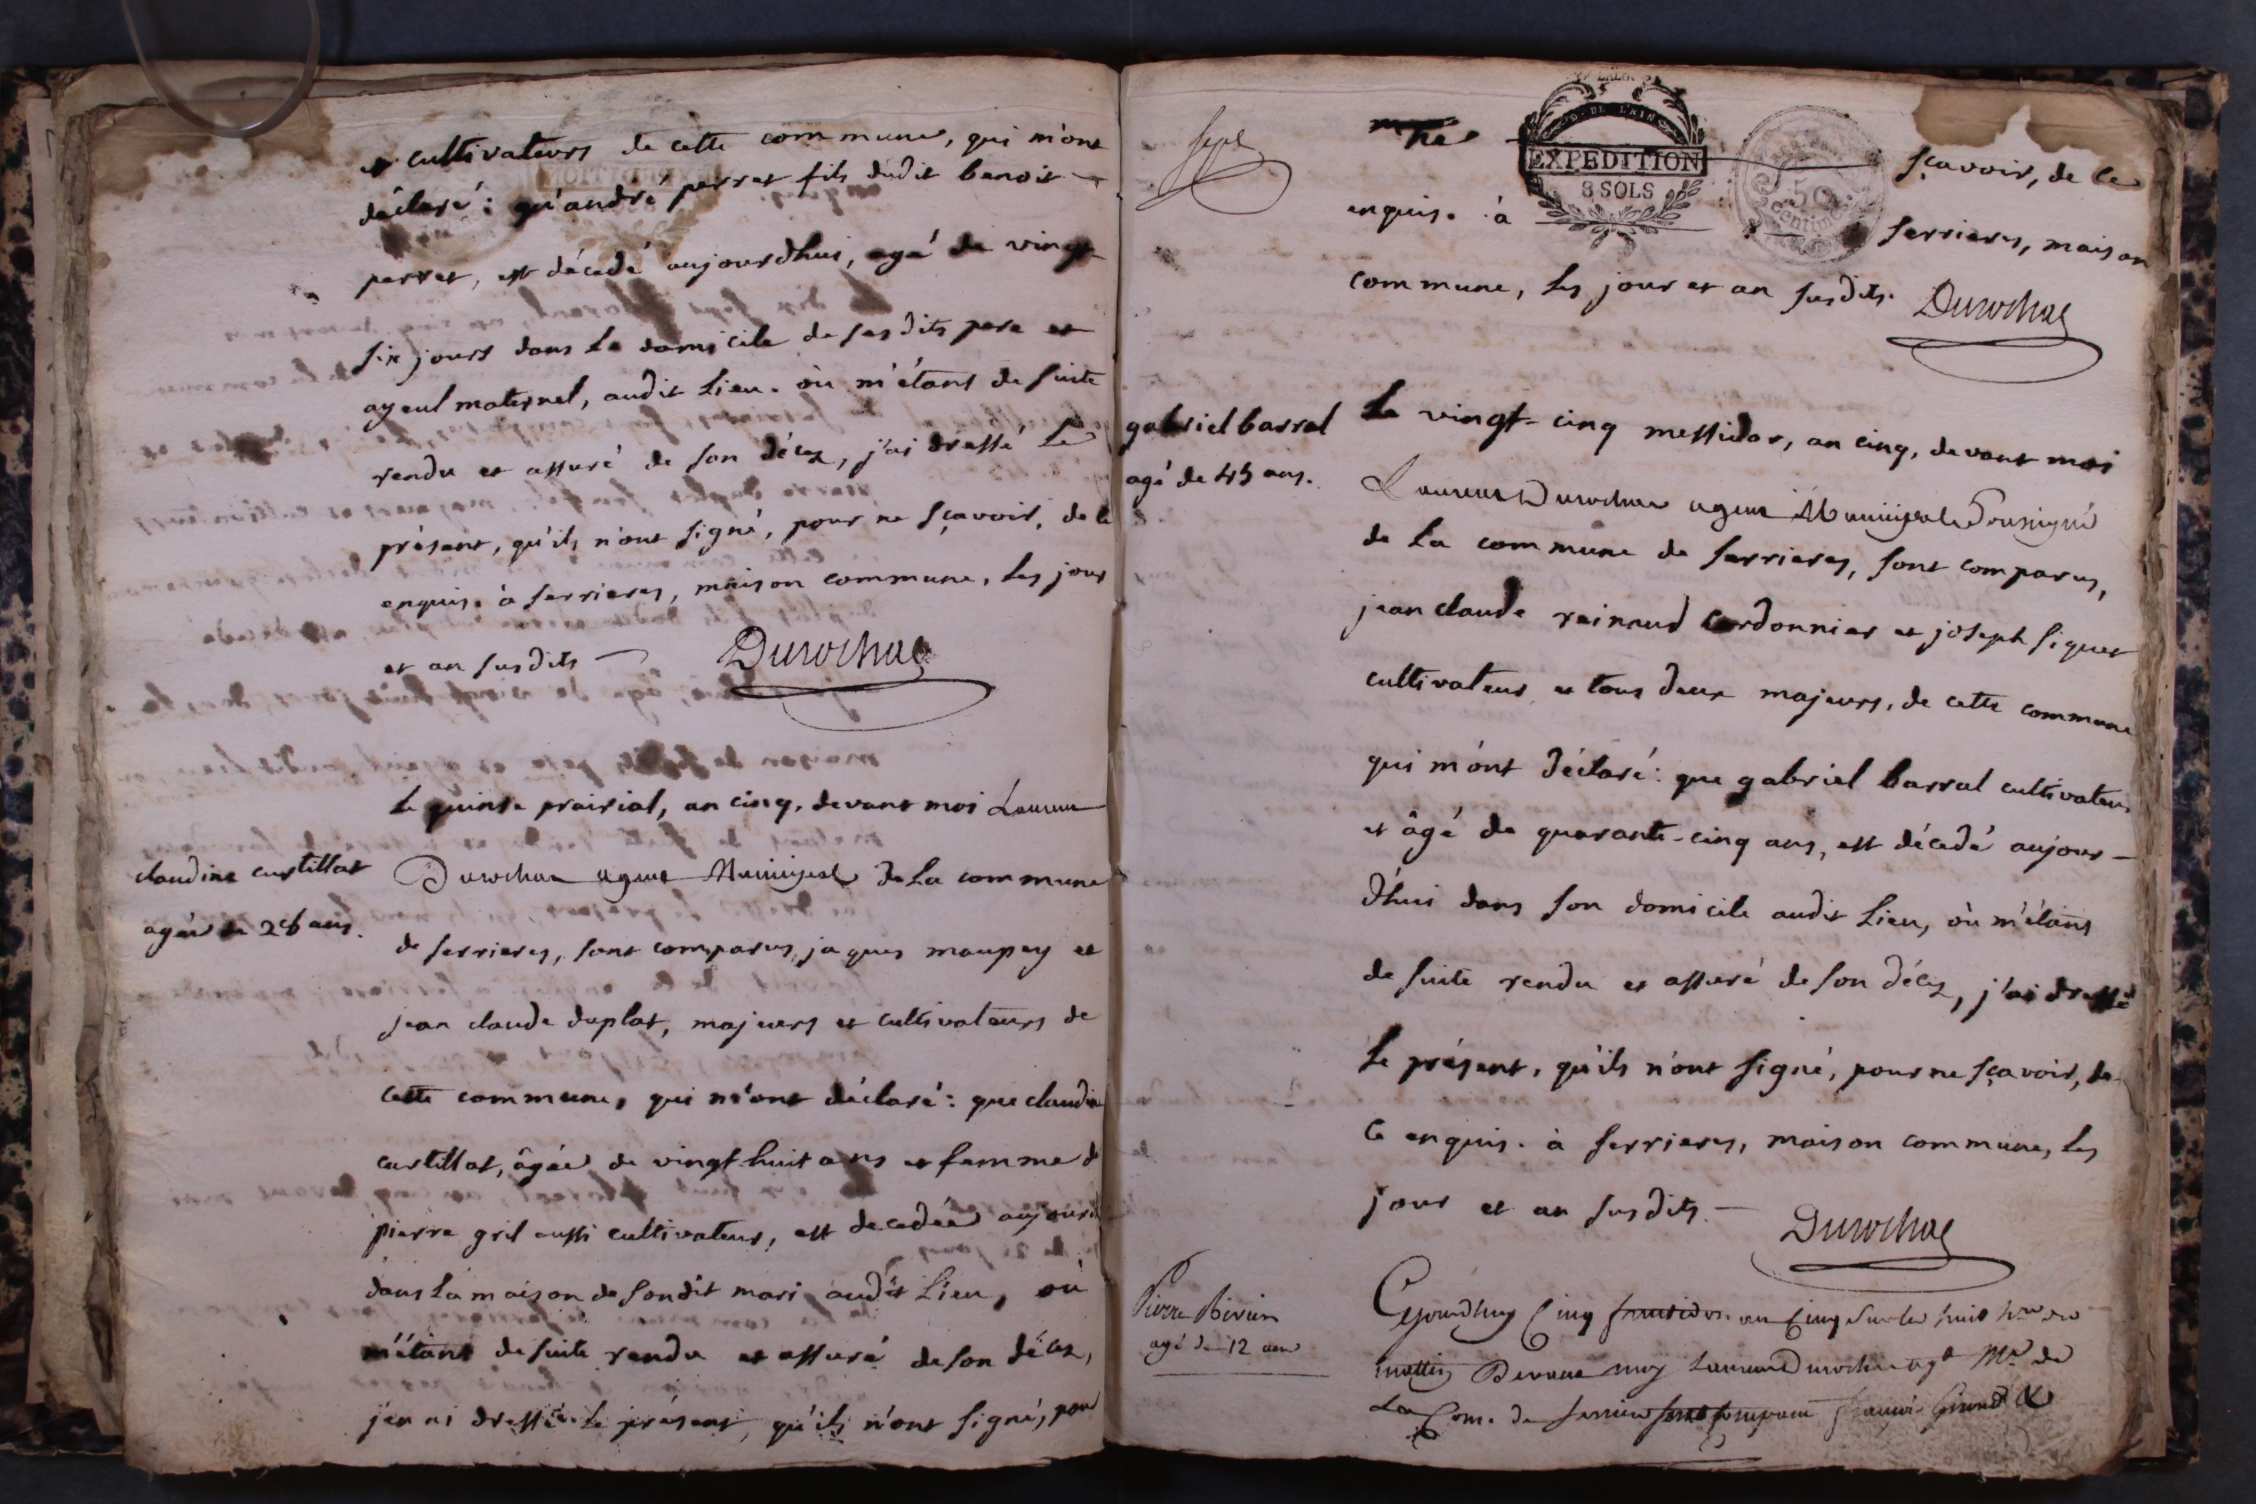 et cultivateurs de cette commune, qui m'ont
déclaré: qu'andré perret fils dudit benoit
perret, est décedé aujourdhui, agé de vingt
six jours dans le domicile de ses dits pere et
ayeul maternel, audit lieu. où m'étant de suite
rendu et assuré de son décez, j'ai dressé le
présent, qu'ils n'ont signé, pour ne sçavoir, de ce
enquis. à serrieres, maison commune, les jour
et an susdits
Durochat
le quinse prairial, an cinq, devant moi Laurent
claudine curtillat
agée de 28 ans.
Durochat agent Municipal de la commune
de serrieres, sont comparus, jaques maupey et
jean claude duplat, majeurs et cultivateurs de
cette commune, qui m'ont déclaré: que claudine
curtillat, âgée de vingt huit ans et femme de
pierre gril aussi cultivateur, est decedée aujourd
dans la maison de son dit mari audit lieu, où
m'étant de suite rendu et assuré de son décez,
j'en ai dressé le présent, qu'ils n'ont signé, pour
sept
ne
DE L'AIN
EXPEDITION
8 SOLS
50
Centimes
sçavoir, de ce
enquis. à
serrieres, maison
commune, les jour et an susdits.
Durochat
gabriel barral
agé de 45 ans.
le vingt-cinq messidor, an cinq, devant moi
Laurent Durochat agent Municipal Soussigné
de la commune de serrieres, sont comparus,
jean claude reinaud cordonnier et joseph siquet
cultivateur et tous deux majeurs, de cette commune
qui m'ont déclaré: que gabriel barral cultivateur
et âgé de quarante-cinq ans, est décedé aujour-
d'hui dans son domicile audit lieu, où m'étant
de suite rendu et assuré de son décez, j'ai dressé
le présent, qu'ils n'ont signé, pour ne sçavoir, de
ce enquis. à serrieres, maison commune, les
jour et an susdits.
Durochat
Pierre
agé de 12 ans
Cejourdhuy Cinq an Cinq sur les huit
mattin Devant moy Laurent Durochat agt Mal de
La Com. de serriere sont comparu